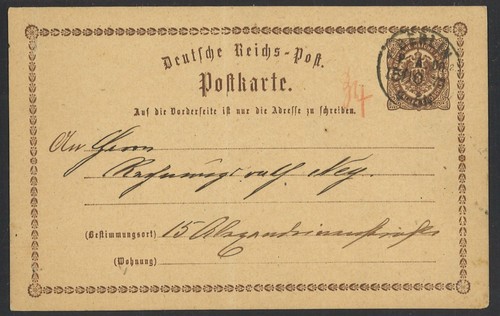 Deutsche Reichs-Post.
Postkarte.
Auf die Vorderseite ist nur die Adresse zu schreiben.
BERLIN
An Herrn
Rechnungsrath Ney.
(Bestimmungsort) 15 Alexandrinenstraße
(Wohnung)